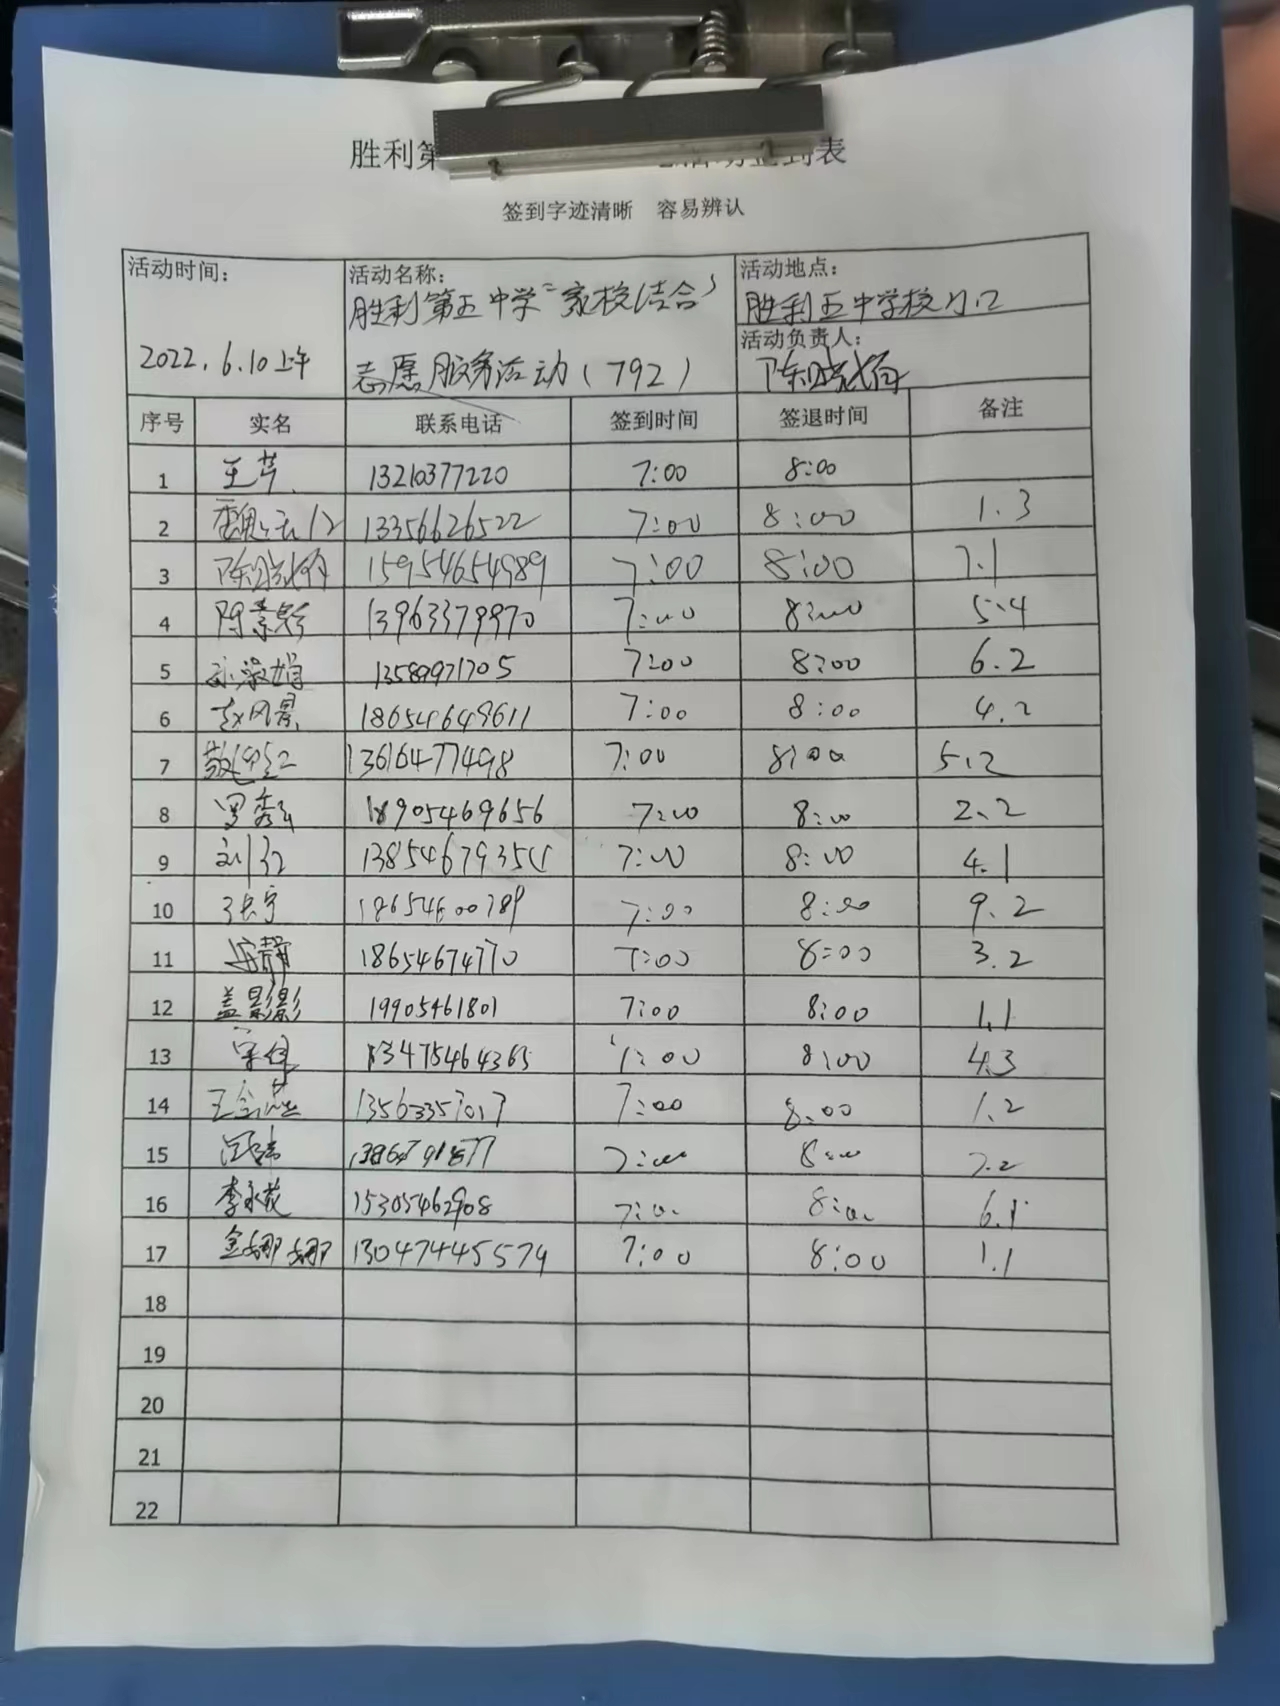 胜利第 活动签到表
签到字迹清晰 容易辨认
活动时间： 活动名称： 活动地点：
胜利第五中学"家校结合" 胜利五中学校门口
活动负责人：
2022.6.10上午 志愿服务活动(792)
序号 实名 联系电话 签到时间 签退时间 备注
1 王芹 13210377220 7:00 8:00
2 13356626522 7:00 8:00 1.3
3 15954654989 7:00 8:00 7.1
4 陈素珍 13963379970 7:00 8:00 5.4
5 13589971705 7:00 8:00 6.2
6 赵风景 18654649611 7:00 8:00 4.2
7 13616477498 7:00 8:00 5.2
8 罗秀 18905469656 7:00 8:00 2.2
9 刘 13854679354 7:00 8:00 4.1
10 张宁 18654600789 7:00 8:00 9.2
11 静 18654674770 7:00 8:00 3.2
12 盖影影 19905461801 7:00 8:00 1.1
13 宋 13475464365 7:00 8:00 4.3
14 王 13563357017 7:00 8:00 1.2
15 7:00 8:00 7.2
16 李永花 15305462908 7:00 8:00 6.1
17 金娜娜 13047445579 7:00 8:00 1.1
18
19
20
21
22